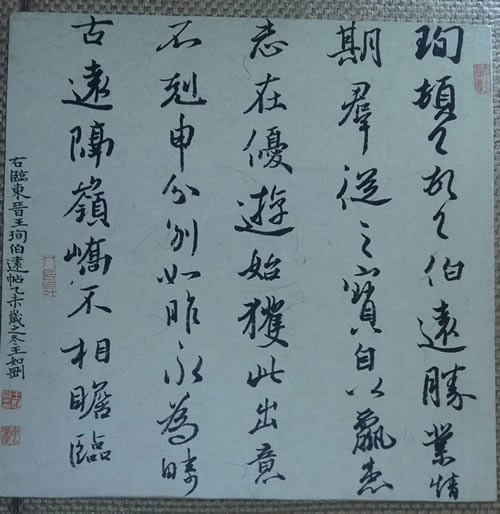 珣頓首頓首伯遠勝業情
期羣從之寶自以羸患
志在優遊始獲此出意
不剋申分別如昨永為疇
古遠隔嶺嶠不相瞻臨
右臨東晉王珣伯遠帖乙未歲之冬王如